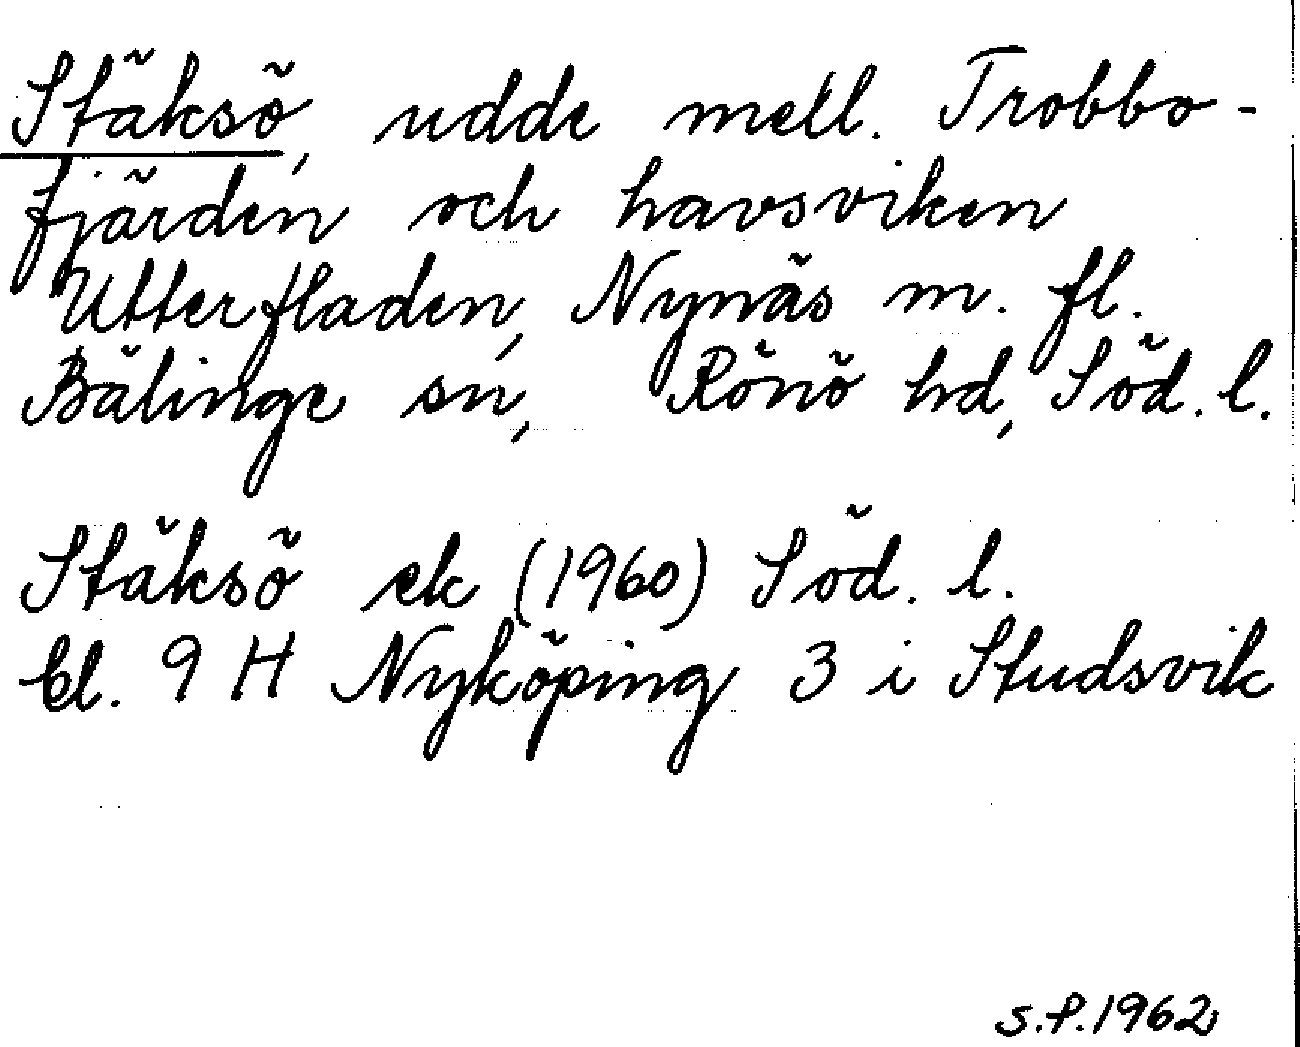 Stäksö, udde mell. Trobbo-
fjärden och havsviken
Utterfladen, Nynäs m. fl.
Bälinge sn, Rönö hd, Söd. l.
Stäksö ek (1960) Söd. l.
bl. 9 H Nyköping 3 i Studsvik
S.P. 1962